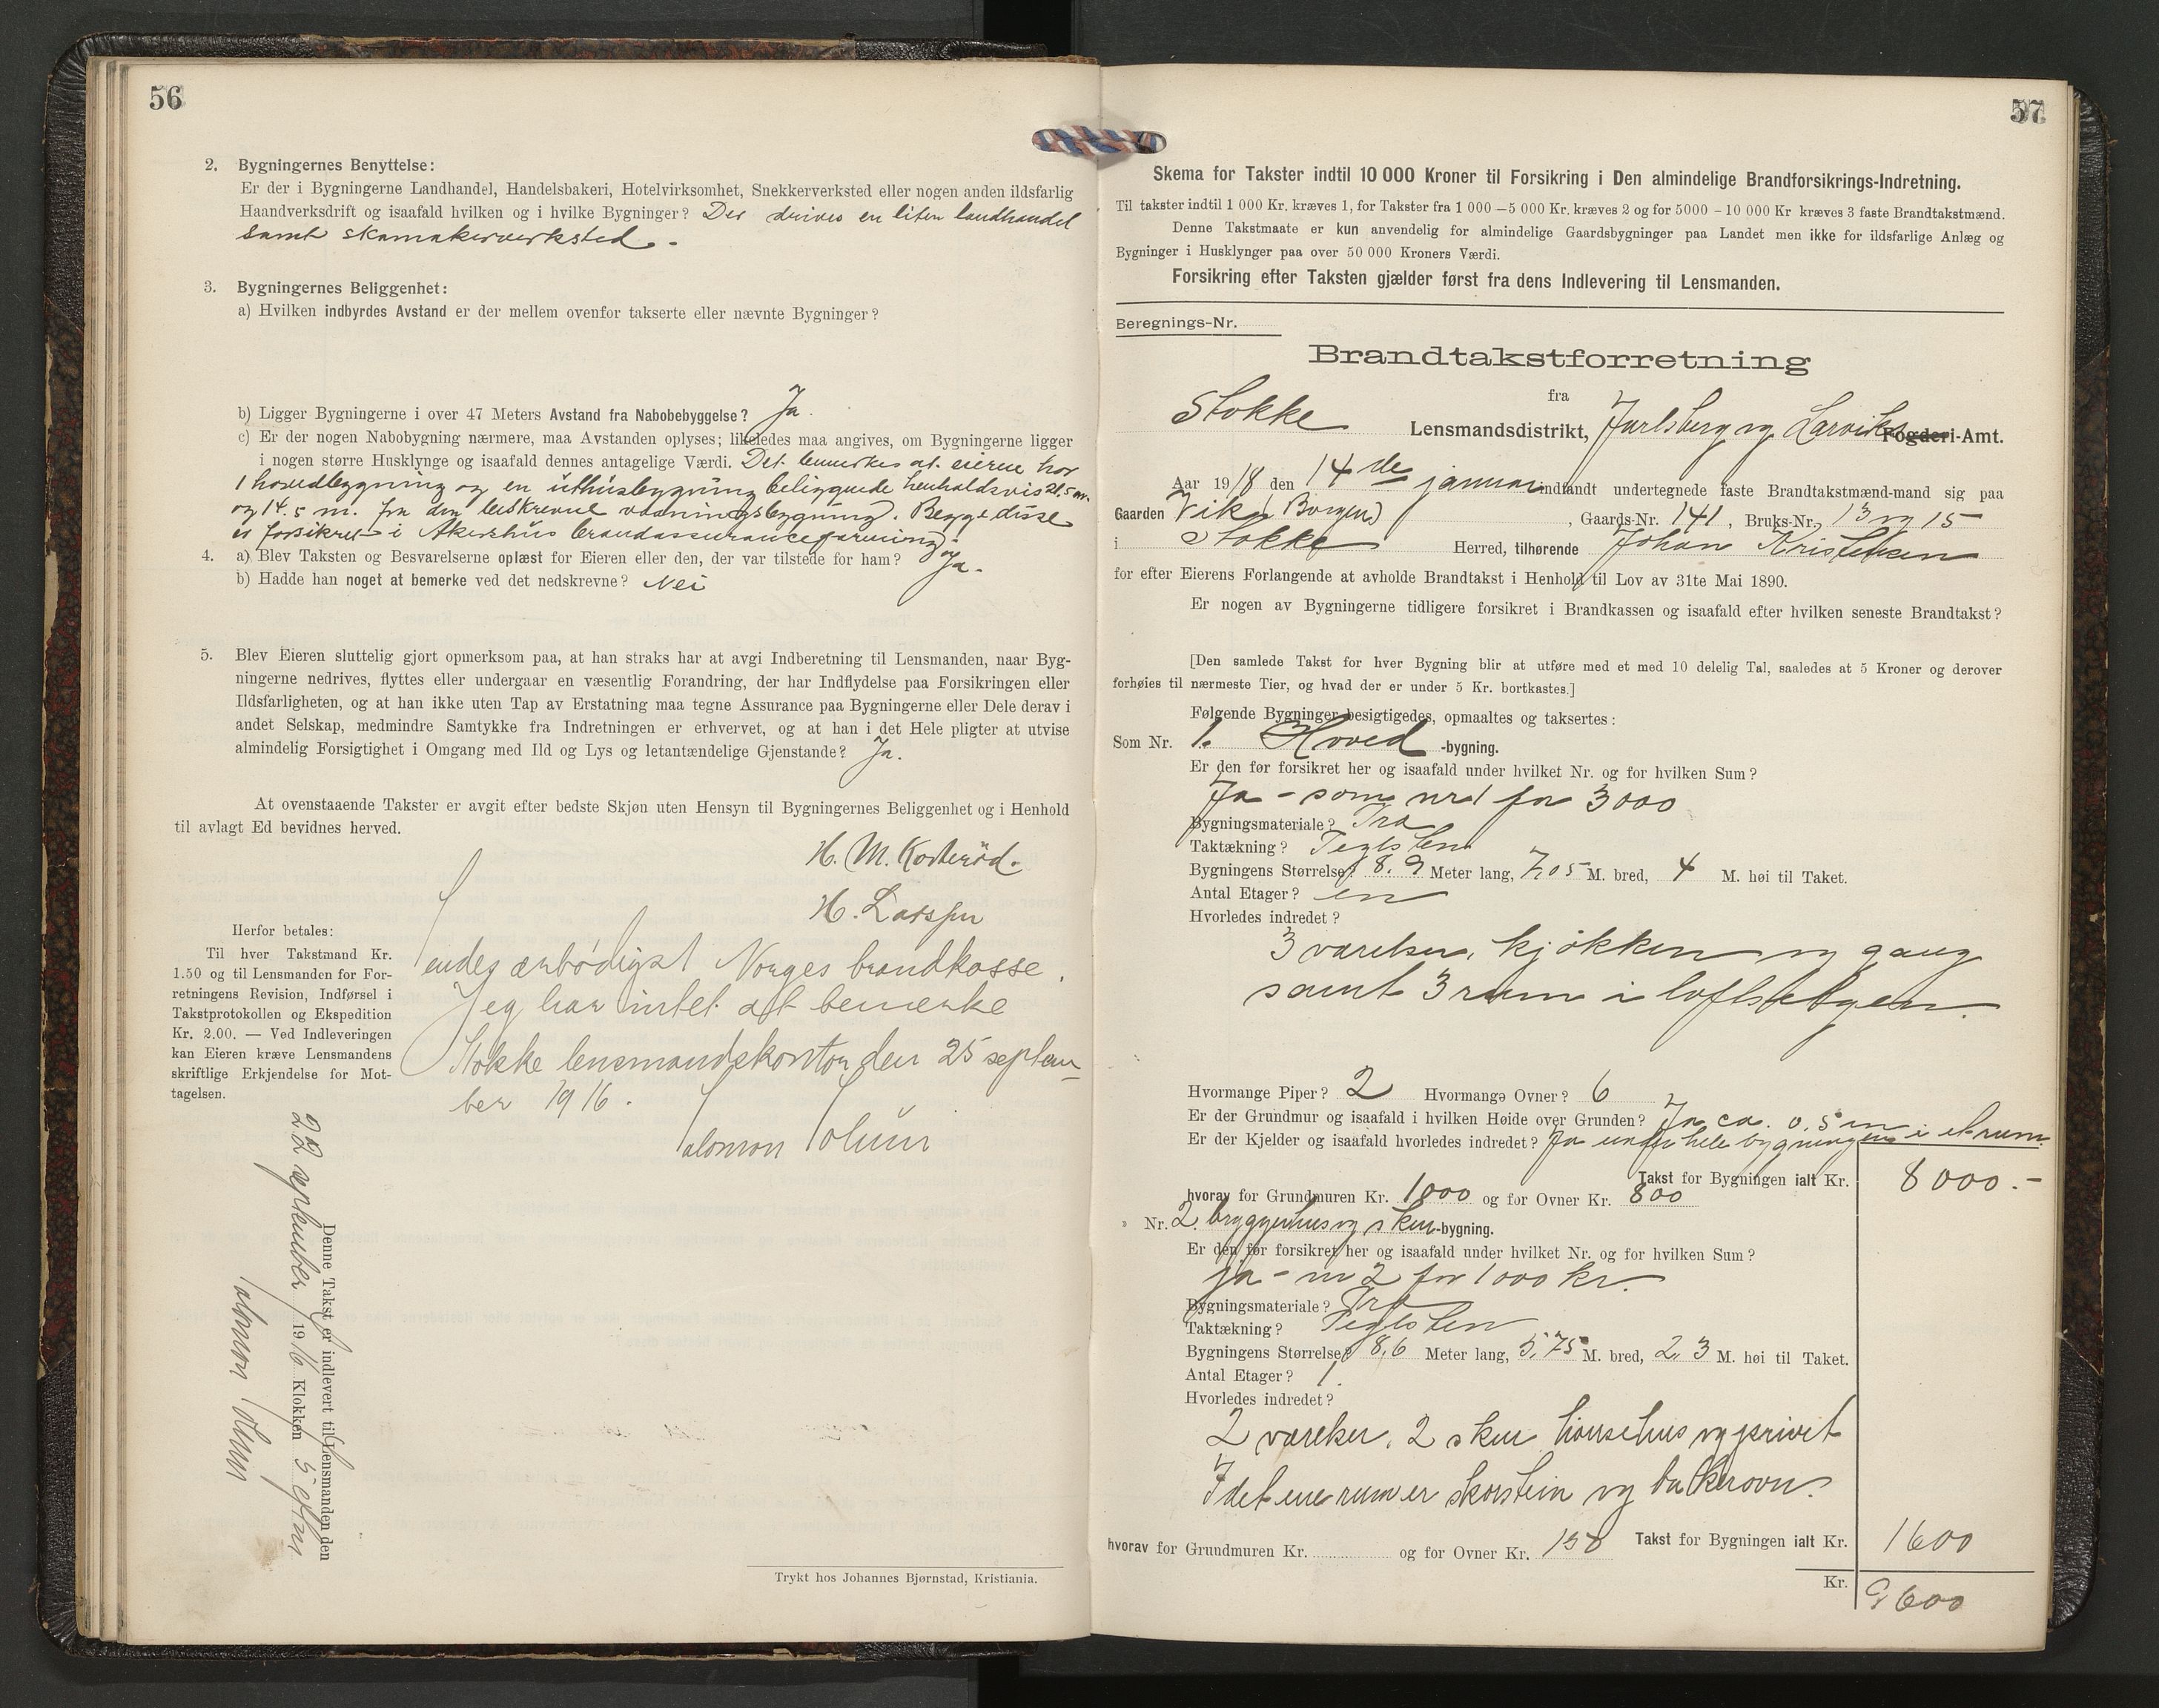 56
2. Bygningernes Benyttelse:
Er der i Bygningerne Landhandel, Handelsbakeri, Hotelvirksomhet, Snekkerverksted eller nogen anden ildsfarlig
Haandverksdrift og isaafald hvilken og i hvilke Bygninger? Der drives en liten landhandel
samt skomakerverksted.-
3. Bygningernes Beliggenhet:
a) Hvilken indbyrdes Avstand er der mellem ovenfor takserte eller nævnte Bygninger?
b) Ligger Bygningerne i over 47 Meters Avstand fra Nabobebyggelse? Ja.
c) Er der nogen Nabobygning nærmere, maa Avstanden oplyses; likeledes maa angives, om Bygningerne ligger
i nogen større Husklynge og isaafald dennes antagelige Værdi. Det bemerkes at eierne har
1 hovedbygning og en uthusbygning beliggende henholdsvis 21.5 m.
og 14.5 m. fra den beskrevne vaaningsbygning. Begge disse
er forsikret i Akershus brandassuranceforening
4. a) Blev Taksten og Besvarelserne oplæst for Eieren eller den, der var tilstede for ham? Ja.
b) Hadde han noget at bemerke ved det nedskrevne? Nei
5. Blev Eieren sluttelig gjort opmerksom paa, at han straks har at avgi Indberetning til Lensmanden, naar Byg-
ningerne nedrives, flyttes eller undergaar en væsentlig Forandring, der har Indflydelse paa Forsikringen eller
Ildsfarligheten, og at han ikke uten Tap av Erstatning maa tegne Assurance paa Bygningerne eller Dele derav i
andet Selskap, medmindre Samtykke fra Indretningen er erhvervet, og at han i det Hele pligter at utvise
almindelig Forsigtighet i Omgang med Ild og Lys og letantændelige Gjenstande? Ja.
At ovenstaaende Takster er avgit efter bedste Skjøn uten Hensyn til Bygningernes Beliggenhet og i Henhold
til avlagt Ed bevidnes herved.
H. M. Kosterød.
H. Larssen
Herfor betales:
Til hver Takstmand Kr.
1.50 og til Lensmanden for For-
retningens Revision, Indførsel i
Takstprotokollen og Ekspedition
Kr. 2.00. — Ved Indleveringen
kan Eieren kræve Lensmandens
skriftlige Erkjendelse for Mot-
tagelsen.
Sendes ærbødigst Norges brandkasse.
Jeg har intet at bemerke
Stokke lensmandskontor den 25 septem-
ber 1916.
Salomon Solum
Denne Takst er indlevert til Lensmanden den
22 september 1916 Klokken 5 eftm
Salomon Solum
Trykt hos Johannes Bjørnstad, Kristiania.
57
Skema for Takster indtil 10 000 Kroner til Forsikring i Den almindelige Brandforsikrings-Indretning.
Til takster indtil 1 000 Kr. kræves 1, for Takster fra 1 000 – 5 000 Kr. kræves 2 og for 5000 – 10 000 Kr kræves 3 faste Brandtakstmænd.
Denne Takstmaate er kun anvendelig for almindelige Gaardsbygninger paa Landet men ikke for ildsfarlige Anlæg og
Bygninger i Husklynger paa over 50 000 Kroners Værdi.
Forsikring efter Taksten gjælder først fra dens Indlevering til Lensmanden.
Beregnings-Nr.
Brandtakstforretning
fra
Stokke Lensmandsdistrikt, Jarlsberg og Larviks Fogderi-Amt.
Aar 1918 den 14de januar indfandt undertegnede faste Brandtakstmænd-mand sig paa
Gaarden Vike (Borgen), Gaards-Nr. 141, Bruks-Nr. 13 og 15
i Stokke Herred, tilhørende Johan Kristensen
for efter Eierens Forlangende at avholde Brandtakst i Henhold til Lov av 31te Mai 1890.
Er nogen av Bygningerne tidligere forsikret i Brandkassen og isaafald efter hvilken seneste Brandtakst?
[Den samlede Takst for hver Bygning blir at utføre med et med 10 delelig Tal, saaledes at 5 Kroner og derover
forhøies til nærmeste Tier, og hvad der er under 5 Kr. bortkastes.]
Følgende Bygninger besigtigedes, opmaaltes og taksertes:
Som Nr. 1. Hoved-bygning.
Er den før forsikret her og isaafald under hvilket Nr. og for hvilken Sum?
Ja - som nr 1 for 3000
Bygningsmateriale? Træ
Taktækning? Teglsten
Bygningens Størrelse? 8.9 Meter lang, 7.05 M. bred, 4 M. høi til Taket.
Antal Etager? en
Hvorledes indredet?
3 værelser, kjøkken og gang
samt 3 rum i loftsetagen.
Hvormange Piper? 2 Hvormange Ovner? 6
Er der Grundmur og isaafald i hvilken Høide over Grunden? Ja ca. 0.5 m
Er der Kjelder og isaafald hvorledes indredet? Ja under hele bygningen i et rum.
Takst for Bygningen ialt Kr. 8000.-
hvorav for Grundmuren Kr. 1000 og for Ovner Kr. 800
» Nr. 2. bryggerhus og skur-bygning.
Er den før forsikret her og isaafald under hvilket Nr. og for hvilken Sum?
ja - nr 2 for 1000 kr.
Bygningsmateriale? Træ
Taktækning? Teglsten
Bygningens Størrelse? 8,6 Meter lang, 5,75 M. bred, 2,3 M. høi til Taket.
Antal Etager? 1.
Hvorledes indredet?
2 værelser, 2 skur hønsehus og privet
I det ene rum er skorstein og bakerovn.
Takst for Bygningen ialt Kr. 1600
hvorav for Grundmuren Kr. og for Ovner Kr. 150
Kr. 9600